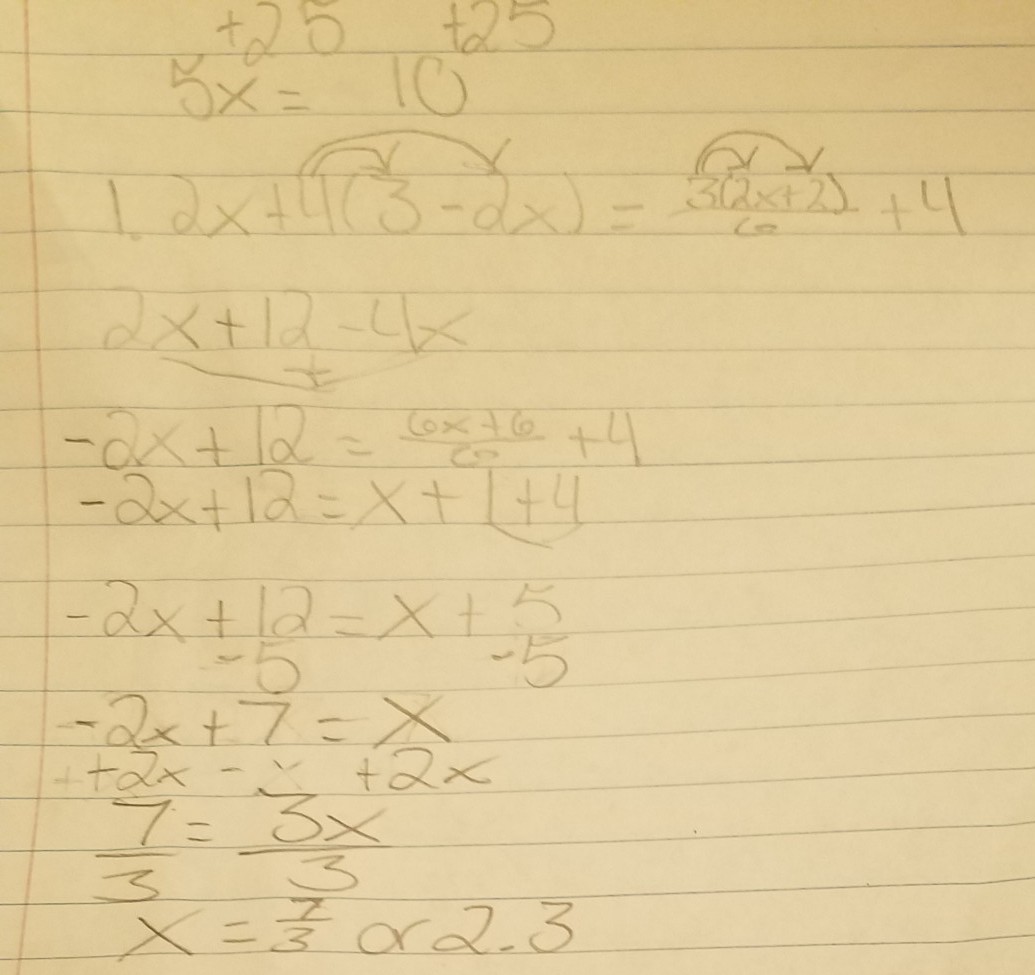 +25 +25
5x = 10
1. 2x+4(3-2x) = 3(2x+2)/6 +4
2x+12-4x
+
-2x+12 = 6x+6/6 +4
-2x+12 = x+1+4
-2x+12 = x+5
-5 -5
-2x+7 = x
+2x - +2x
7/3 = 3x/3
x = 7/3 or 2.3